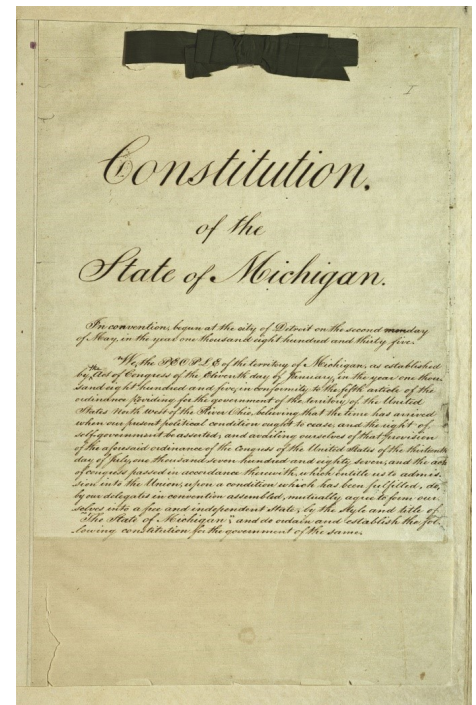 I
Constitution.
of the
State of Michigan.
In convention, begun at the city of Detroit on the second monday
of May, in the year one thousand eight hundred and thirty five:
"We, the PEOPLE of the territory of Michigan, as established
by the Act of Congress of the Eleventh day of January, in the year one thou-
sand eight hundred and five, in conformity to the fifth article of the
ordinance providing for the government of the territory of the United
States North West of the River Ohio, believing that the time has arrived
when our present political condition ought to cease, and the right of
self-government be asserted; and availing ourselves of that provision
of the aforesaid ordinance of the Congress of the United States of the thirteenth
day of July, one thousand seven hundred and eighty seven, and the acts
of congress passed in accordance therewith, which entitle us to admis-
sion into the Union, upon a condition which has been fulfilled, do,
by our delegates in convention assembled, mutually agree to form our-
selves into a free and independent state, by the style and title of
"The State of Michigan," and do ordain and establish the fol-
lowing constitution for the government of the same.